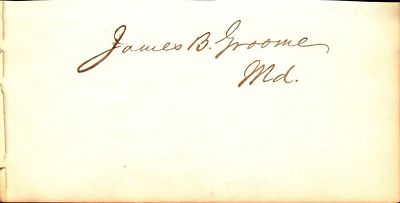 James B. Groome
Md.